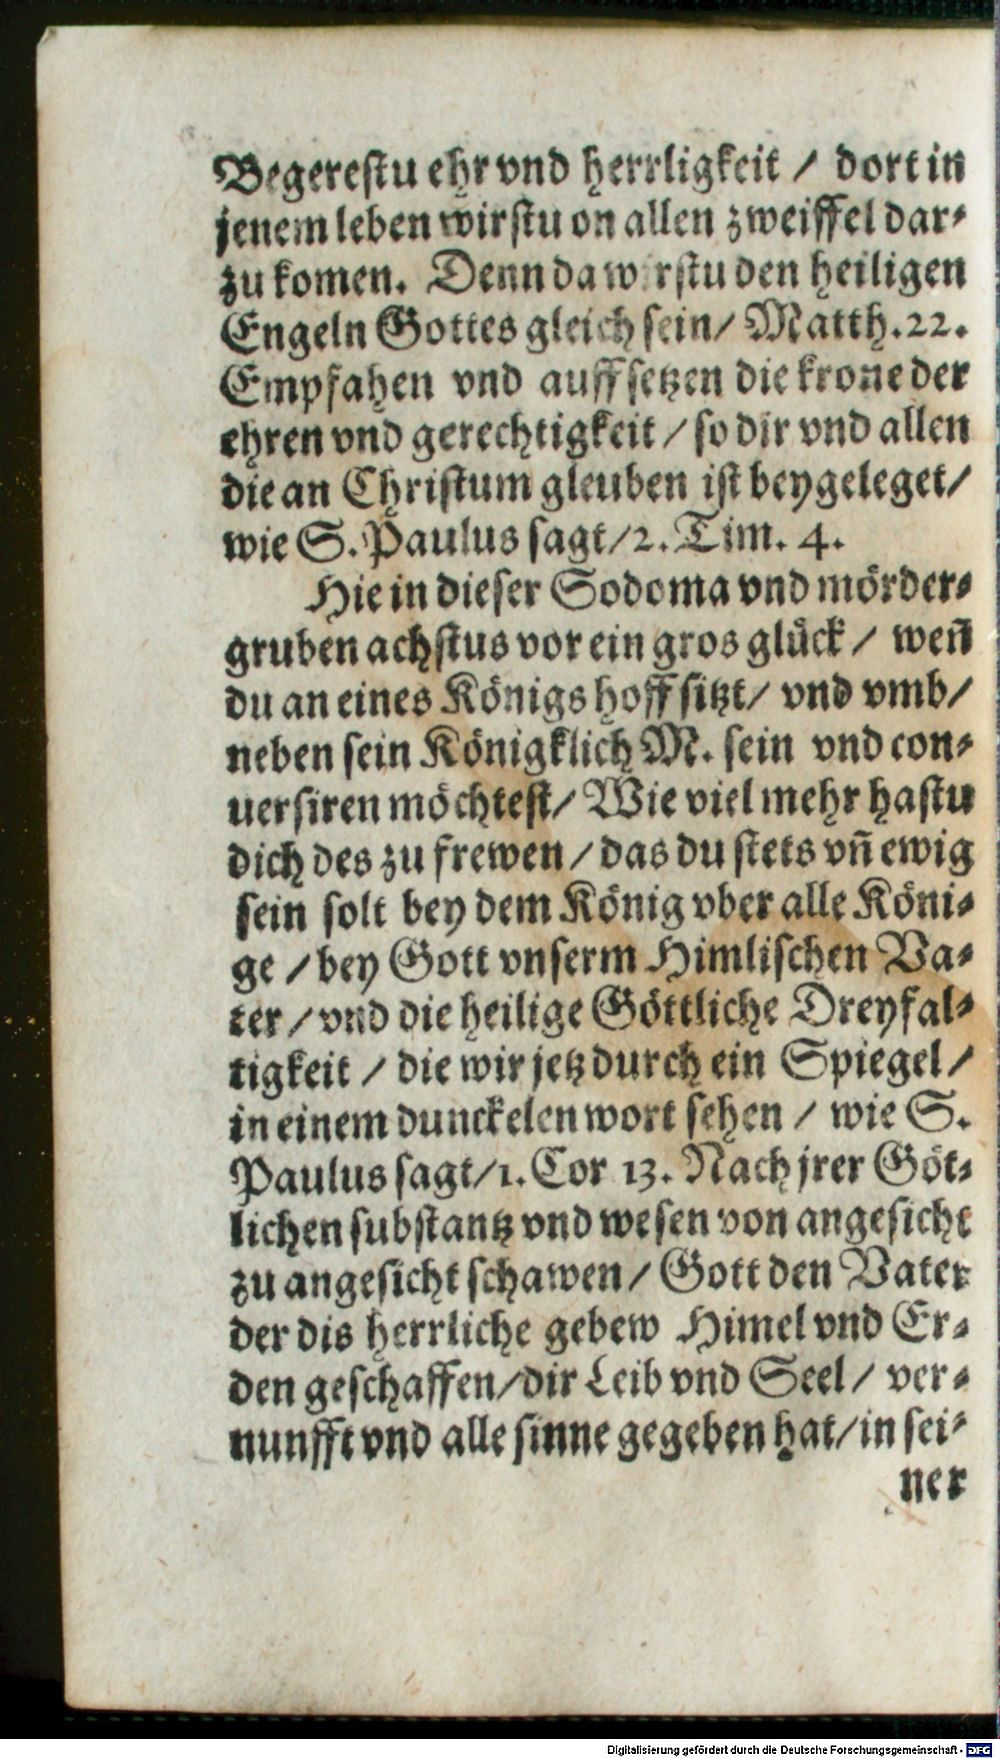 Begerestu ehr vnd herrligkeit / dort in
jenem leben wirstu on allen zweiffel dar⸗
zu komen. Denn da wirstu den heiligen
Engeln Gottes gleich sein/ Matth.22.
Empfahen vnd auffsetzen die krone der
ehren vnd gerechtigkeit / so dir vnd allen
die an Christum gleuben ist beygeleget/
wie S. Paulus sagt/2. Tim. 4.
Hie in dieser Sodoma vnd mörder⸗
gruben achstus vor ein gros glück / weñ
du an eines Königs hoff sitzt/ vnd vmb/
neben sein Königklich M. sein vnd con⸗
uersiren möchtest/ Wie viel mehr hastu
dich des zu frewen / das du stets vñ ewig
sein solt bey dem König vber alle Köni⸗
ge / bey Gott vnserm Himlischen Va⸗
ter / vnd die heilige Göttliche Dreyfal⸗
tigkeit / die wir jetz durch ein Spiegel /
in einem dunckelen wort sehen / wie S.
Paulus sagt/1. Cor 13. Nach jrer Göt⸗
lichen substantz vnd wesen von angesicht
zu angesicht schawen / Gott den Vater
der dis herrliche gebew Himel vnd Er⸗
den geschaffen/dir Leib vnd Seel / ver⸗
nunfft vnd alle sinne gegeben hat/in sei⸗
ner
Digitalisierung gefördert durch die Deutsche Forschungsgemeinschaft - DFG